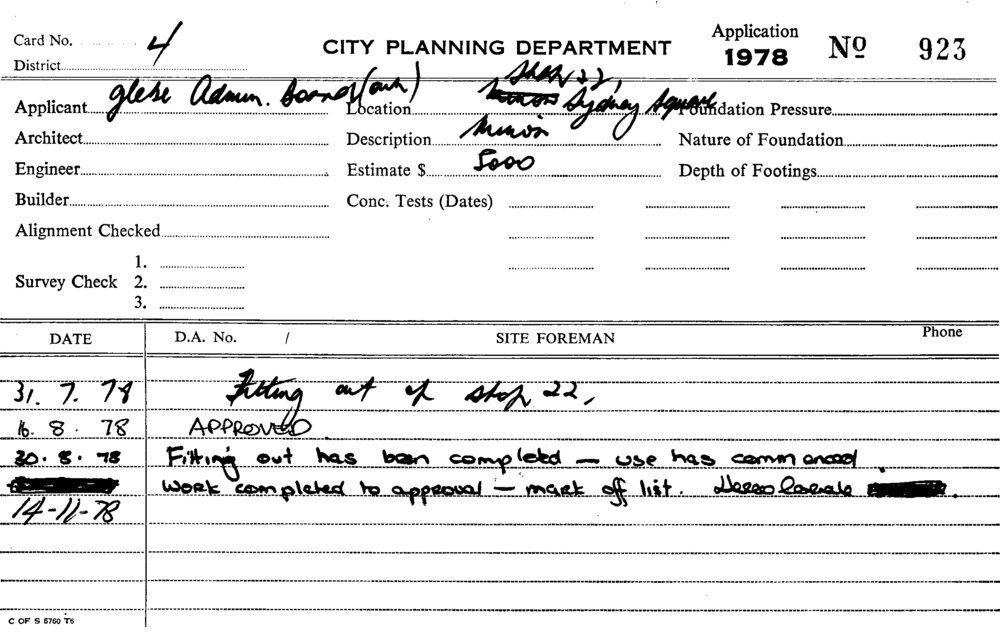 Card No. 4
CITY PLANNING DEPARTMENT
Application
1978
Nº 923
District
Applicant Glebe Admin. Board
Location Shop 22, Sydney Square
Foundation Pressure
Architect
Description Minor
Nature of Foundation
Engineer
Estimate $ 5000
Depth of Footings
Builder
Conc. Tests (Dates)
Alignment Checked
Survey Check
1.
2.
3.
DATE
D.A. No. /
SITE FOREMAN
Phone
31. 7. 78 Fitting out of shop 22,
16. 8. 78 APPROVED
30. 8. 78 Fitting out has been completed – use has commenced.
work completed to approval – mark off list.
14-11-78
C OF S 5760 T6